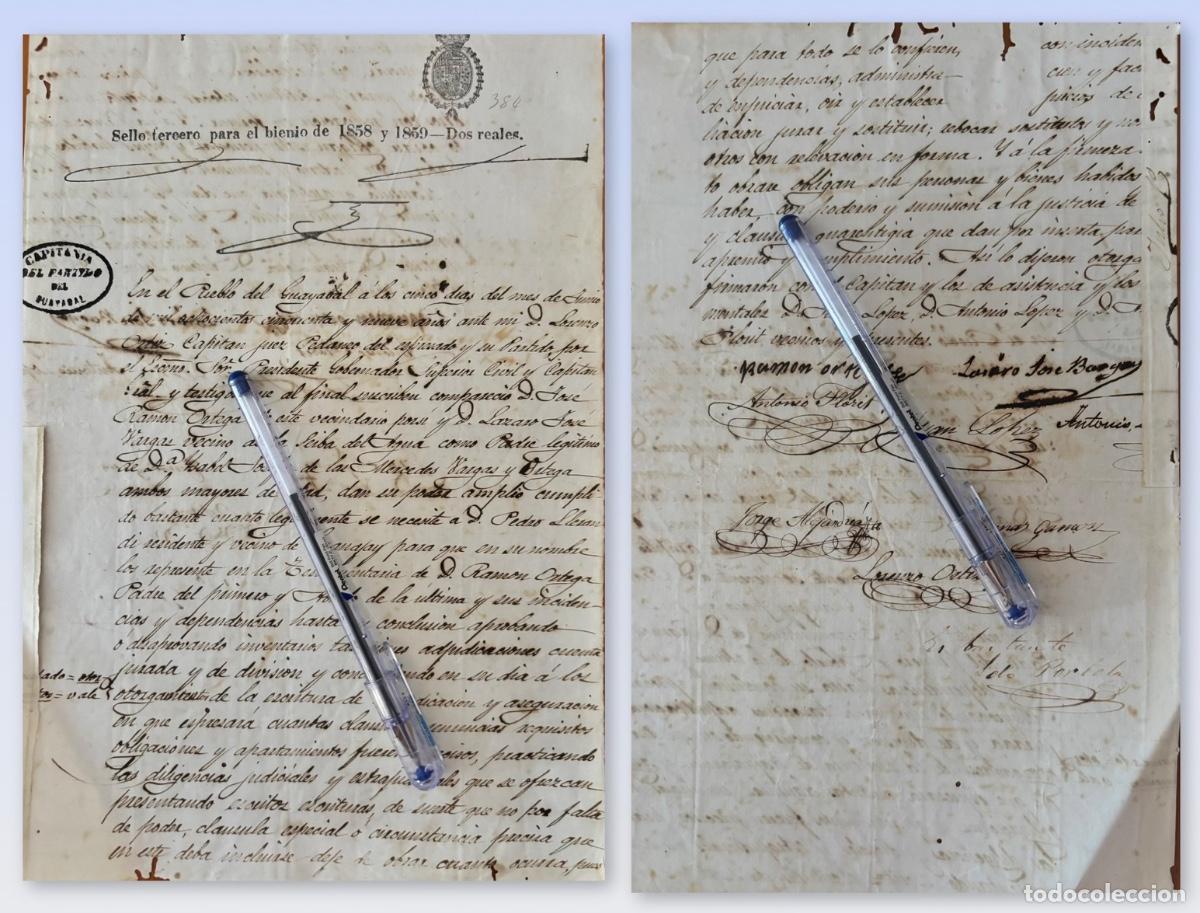 384
Sello tercero para el bienio de 1858 y 1859—Dos reales.
CAPITANIA
DEL PARTIDO
DEL
GUAYABAL
En el Pueblo del Guayabal á los cinco dias del mes de Junio
de mil ochocientos cincuenta y nueve años ante mi D. Lorenzo
Capitan juez Pedaneo del espresado y su Partido por
el Escmo. Sor. Presidente Gobernador Superior Civil y Capitan
ral, y testigos que al final suscriben comparecio D. José
Ramon Ortega de este vecindario por si y D. Lazaro José
Vargas vecino de la Seiba del Agua como Padre legitimo
de D.ª Isabel de las Mercedes Vargas y Ortega
ambos mayores de edad, dan su poder amplio cumpli
do bastante cuanto legalmente se necesite á D. Pedro
di residente y vecino de Guanajay para que en su nombre
los represente en la Testamentaria de D. Ramon Ortega
Padre del primero y de la ultima y sus inciden-
cias y dependencias hasta conclusion aprobando
o desaprovando inventarios adjudicaciones cuenta
jurada y de division y en su dia á los
otorgantes de la escritura de adjudicacion y aseguracion
en que espresará cuantas clausulas renuncias requisitos
obligaciones y apartamientos fueren precisos, practicando
las diligencias judiciales y estrajudiciales que se ofrezcan
presentando escritos escrituras, de suerte que no por falta
de poder, clausula especial ó circunstancia precisa que
en este deba incluirse deje de obrar cuanto ocurra, pues
que para todo se lo confieren, con inciden
y dependencias, administra cion y fac
de enjuiciar, oir y establecer
liacion jurar y sostituir; rebocar sostitutos y no
otros con relevacion en forma. Y á la firmeza
to obrare obligan sus personas y bienes habidos
haber, con poderio y sumision á la justicia de
y clausula guarentigia que dan por inserta, para
apremio y cumplimiento. Así lo dijeron otorga
firmaron con el Capitan y los de asistencia y los
D. Lopez, D. Antonio Lopez y D.
Florit vecinos y presentes.
Ramon Ortega Lazaro José Bargas
Antonio Florit
Antonio
Jorge Alejandro
Lorenzo
todocoleccion